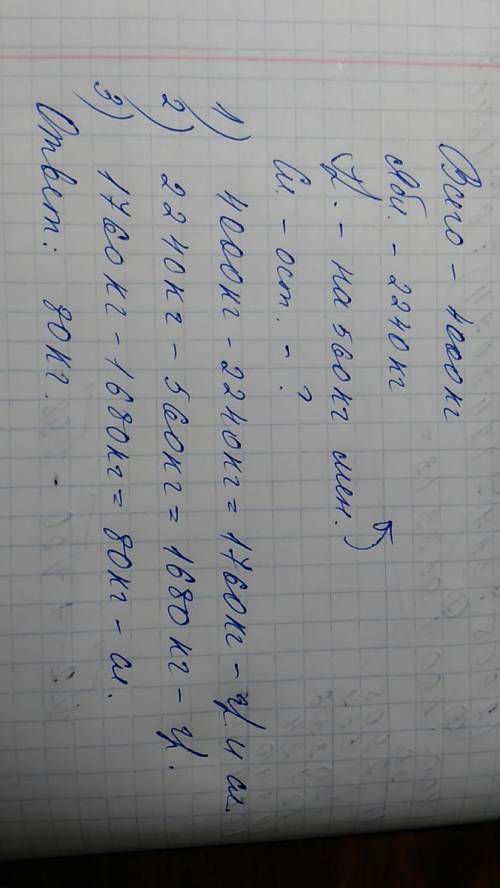 Всего - 4000кг
Ябл. - 2240кг
Ц. - на 560кг мен.
Сл. - ост. - ?
1) 4000кг - 2240кг = 1760кг - ц. и сл.
2) 2240кг - 560кг = 1680кг - ц.
3) 1760кг - 1680кг = 80кг - сл.
Ответ: 80кг.